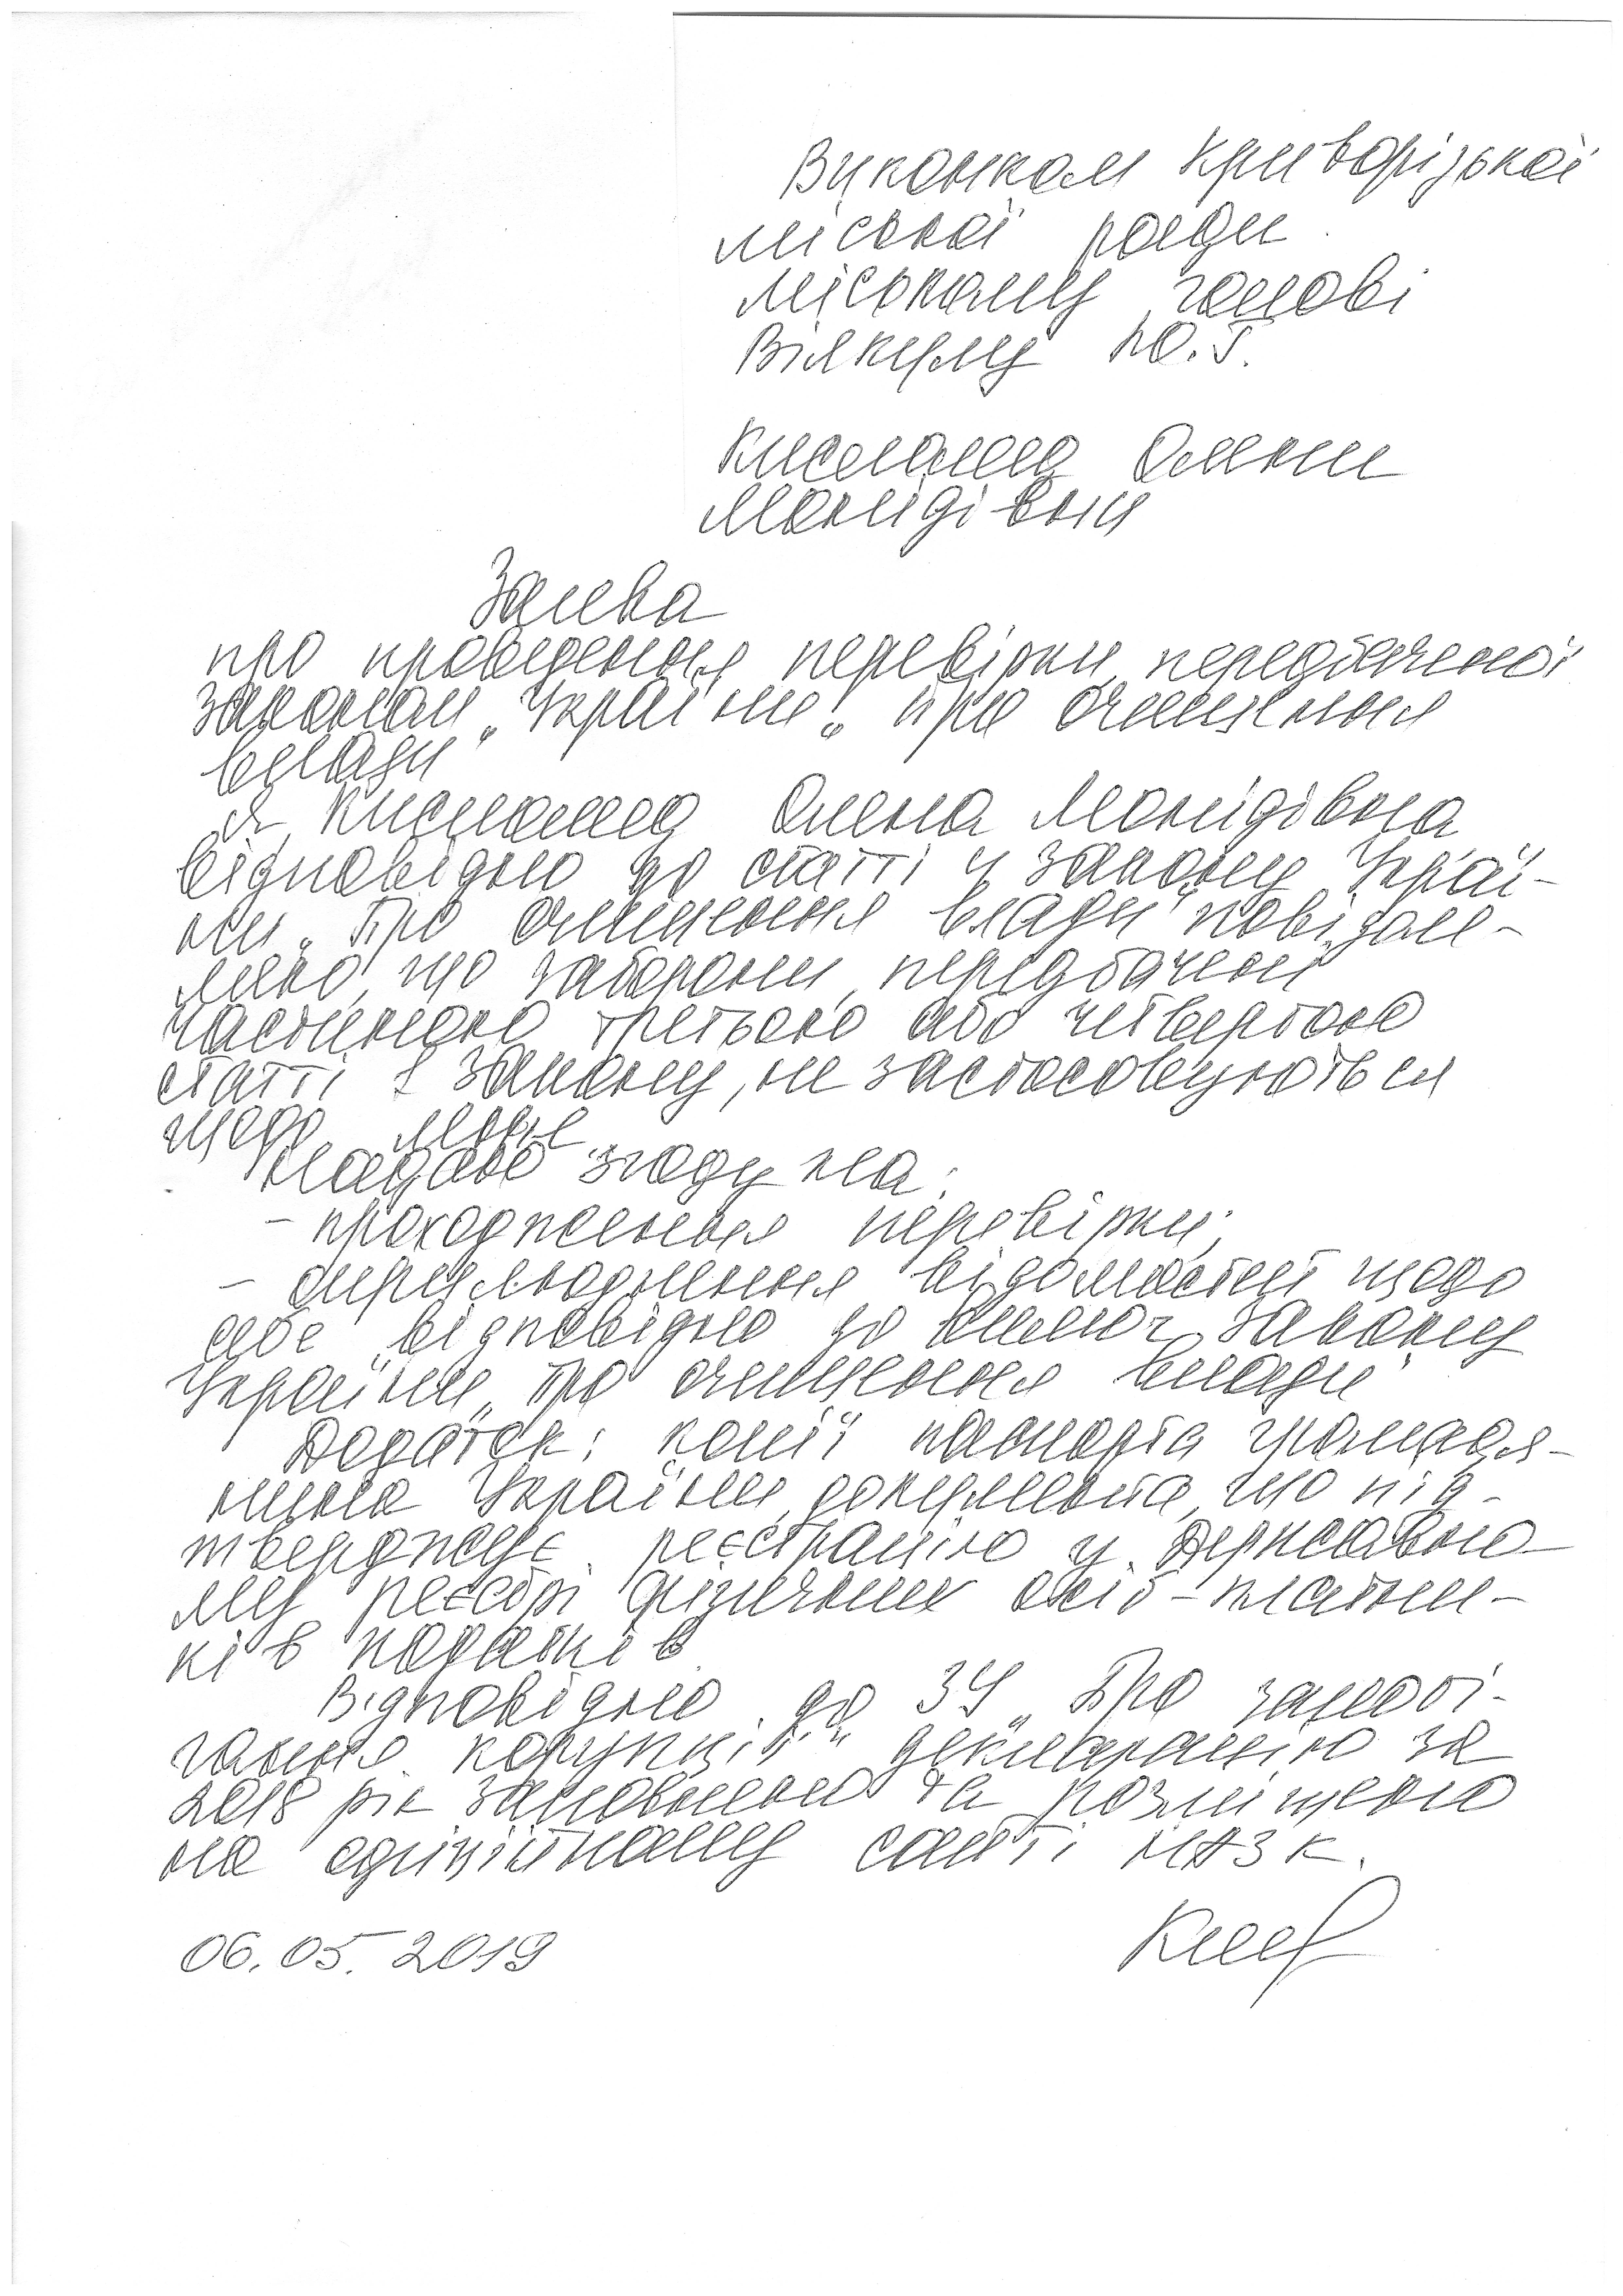 Виконком Криворізької
міської ради
міському голові
Вілкулу Ю.Г.
Олени
Заява
про проведення перевірки, передбаченої
Законом України „Про очищення
влади"
Я, Олена
відповідно до статті 4 Закону Украї-
ни „Про очищення влади" повідом-
ляю, що заборони, передбачені
частиною третьою або четвертою
статті 1 Закону, не застосовуються
щодо мене
Надаю згоду на:
- проходження перевірки;
- оприлюднення відомостей щодо
себе відповідно до вимог Закону
України „Про очищення влади"
Додаток: копії паспорта громадя-
нина України, документа, що під-
тверджує реєстрацію у Державно-
му реєстрі фізичних осіб - платни-
ків податків
Відповідно до ЗУ „Про запобі-
гання корупції" декларацію за
2018 рік заповнено та розміщено
на офіційному сайті НАЗК.
06.05.2019